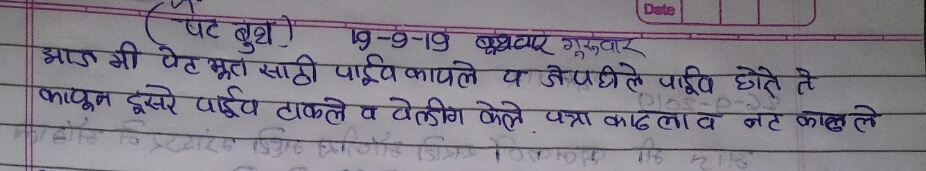 Date
(पेंट बुथ) 19-9-19 बुधवार गुरुवार
आज मी पेट बूत साठी पाईप कापले व जे पहीले पाईप होते ते
कापून दूसरे पाईप टाकले व वेल्डीग केले. पत्रा काढला व नट काढले